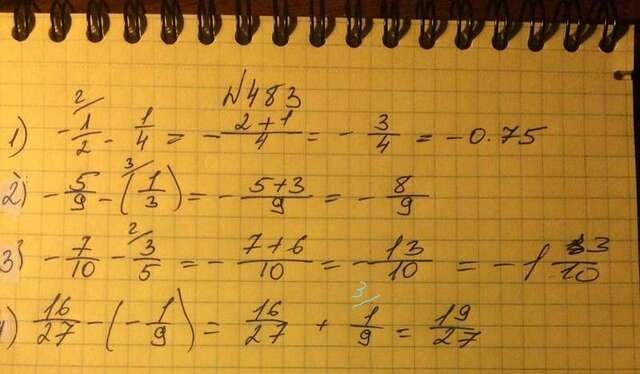 №483
1) -1/2 2/ - 1/4 = -(2+1)/4 = -3/4 = -0.75
2) -5/9 - (1/3 3/) = -(5+3)/9 = -8/9
3) -7/10 - 3/5 2/ = -(7+6)/10 = -13/10 = -1 3/10
4) 16/27 - (-1/9) = 16/27 + 1/9 3/ = 19/27